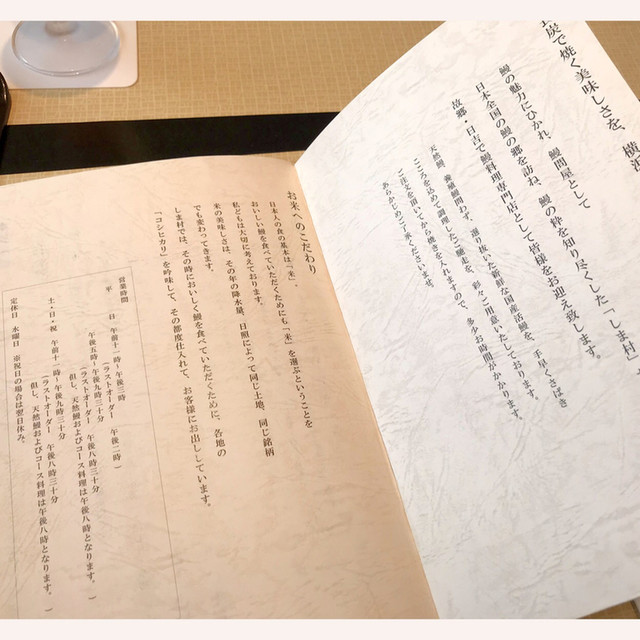 炭で焼く美味しさを、横浜
鰻の魅力にひかれ、鰻問屋として
日本全国の鰻の郷を訪ね、鰻の粋を知り尽くした「しま村」
故郷・日吉で鰻料理専門店として皆様をお迎え致します。
天然鰻、養殖鰻問わず、選り抜いた新鮮な国産活鰻を、手早くさばき
こころを込めて調理したご馳走を、彩々ご用意いたしております。
ご注文を頂いてから焼きを入れますので、多少お時間がかかります。
あらかじめご了承くださいませ。
お米へのこだわり
日本人の食の基本は「米」。
おいしい鰻を食べていただくためにも「米」を選ぶということを
私どもは大切に考えております。
米の美味しさは、その年の降水量、日照によって同じ土地、同じ銘柄
でも変わってきます。
しま村では、その時においしく鰻を食べていただくために、各地の
「コシヒカリ」を吟味して、その都度仕入れて、お客様にお出ししています。
営業時間
平 日 午前十一時〜午後三時
(ラストオーダー 午後二時)
午後五時〜午後九時三十分
(ラストオーダー 午後八時三十分
但し、天然鰻およびコース料理は午後八時となります。)
土・日・祝 午前十一時〜午後九時三十分
(ラストオーダー 午後八時三十分
但し、天然鰻およびコース料理は午後八時となります。)
定休日 水曜日 ※祝日の場合は翌日休み。